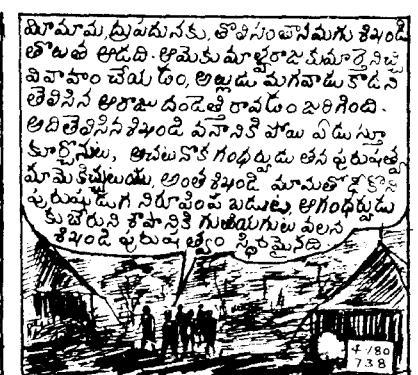 మీమామ, ద్రుపదునకు, తొలిసంతానమగు శిఖండి
తొలుత ఆడది. ఆమెకు మాళ్వరాజు కుమార్తెనిచ్చి
వివాహం చేయడం, అల్లుడు మగవాడు కాడని
తెలిసిన ఆరాజు దండెత్తి రావడం జరిగింది.
అది తెలిసిన శిఖండి వనానికి పోయి ఏడుస్తూ
కూర్చొనుట, అచటనొక గంధర్వుడు తన పురుషత్వ
మామెకిచ్చుటయు, అంత శిఖండి మామతో
పురుషుడుగ నిరూపింప బడుట, ఆగంధర్వుడు
కుబేరుని శాపానికి గురియగుట వలన
శిఖండి పురుషత్వం స్థిరమైనది
4/80
738